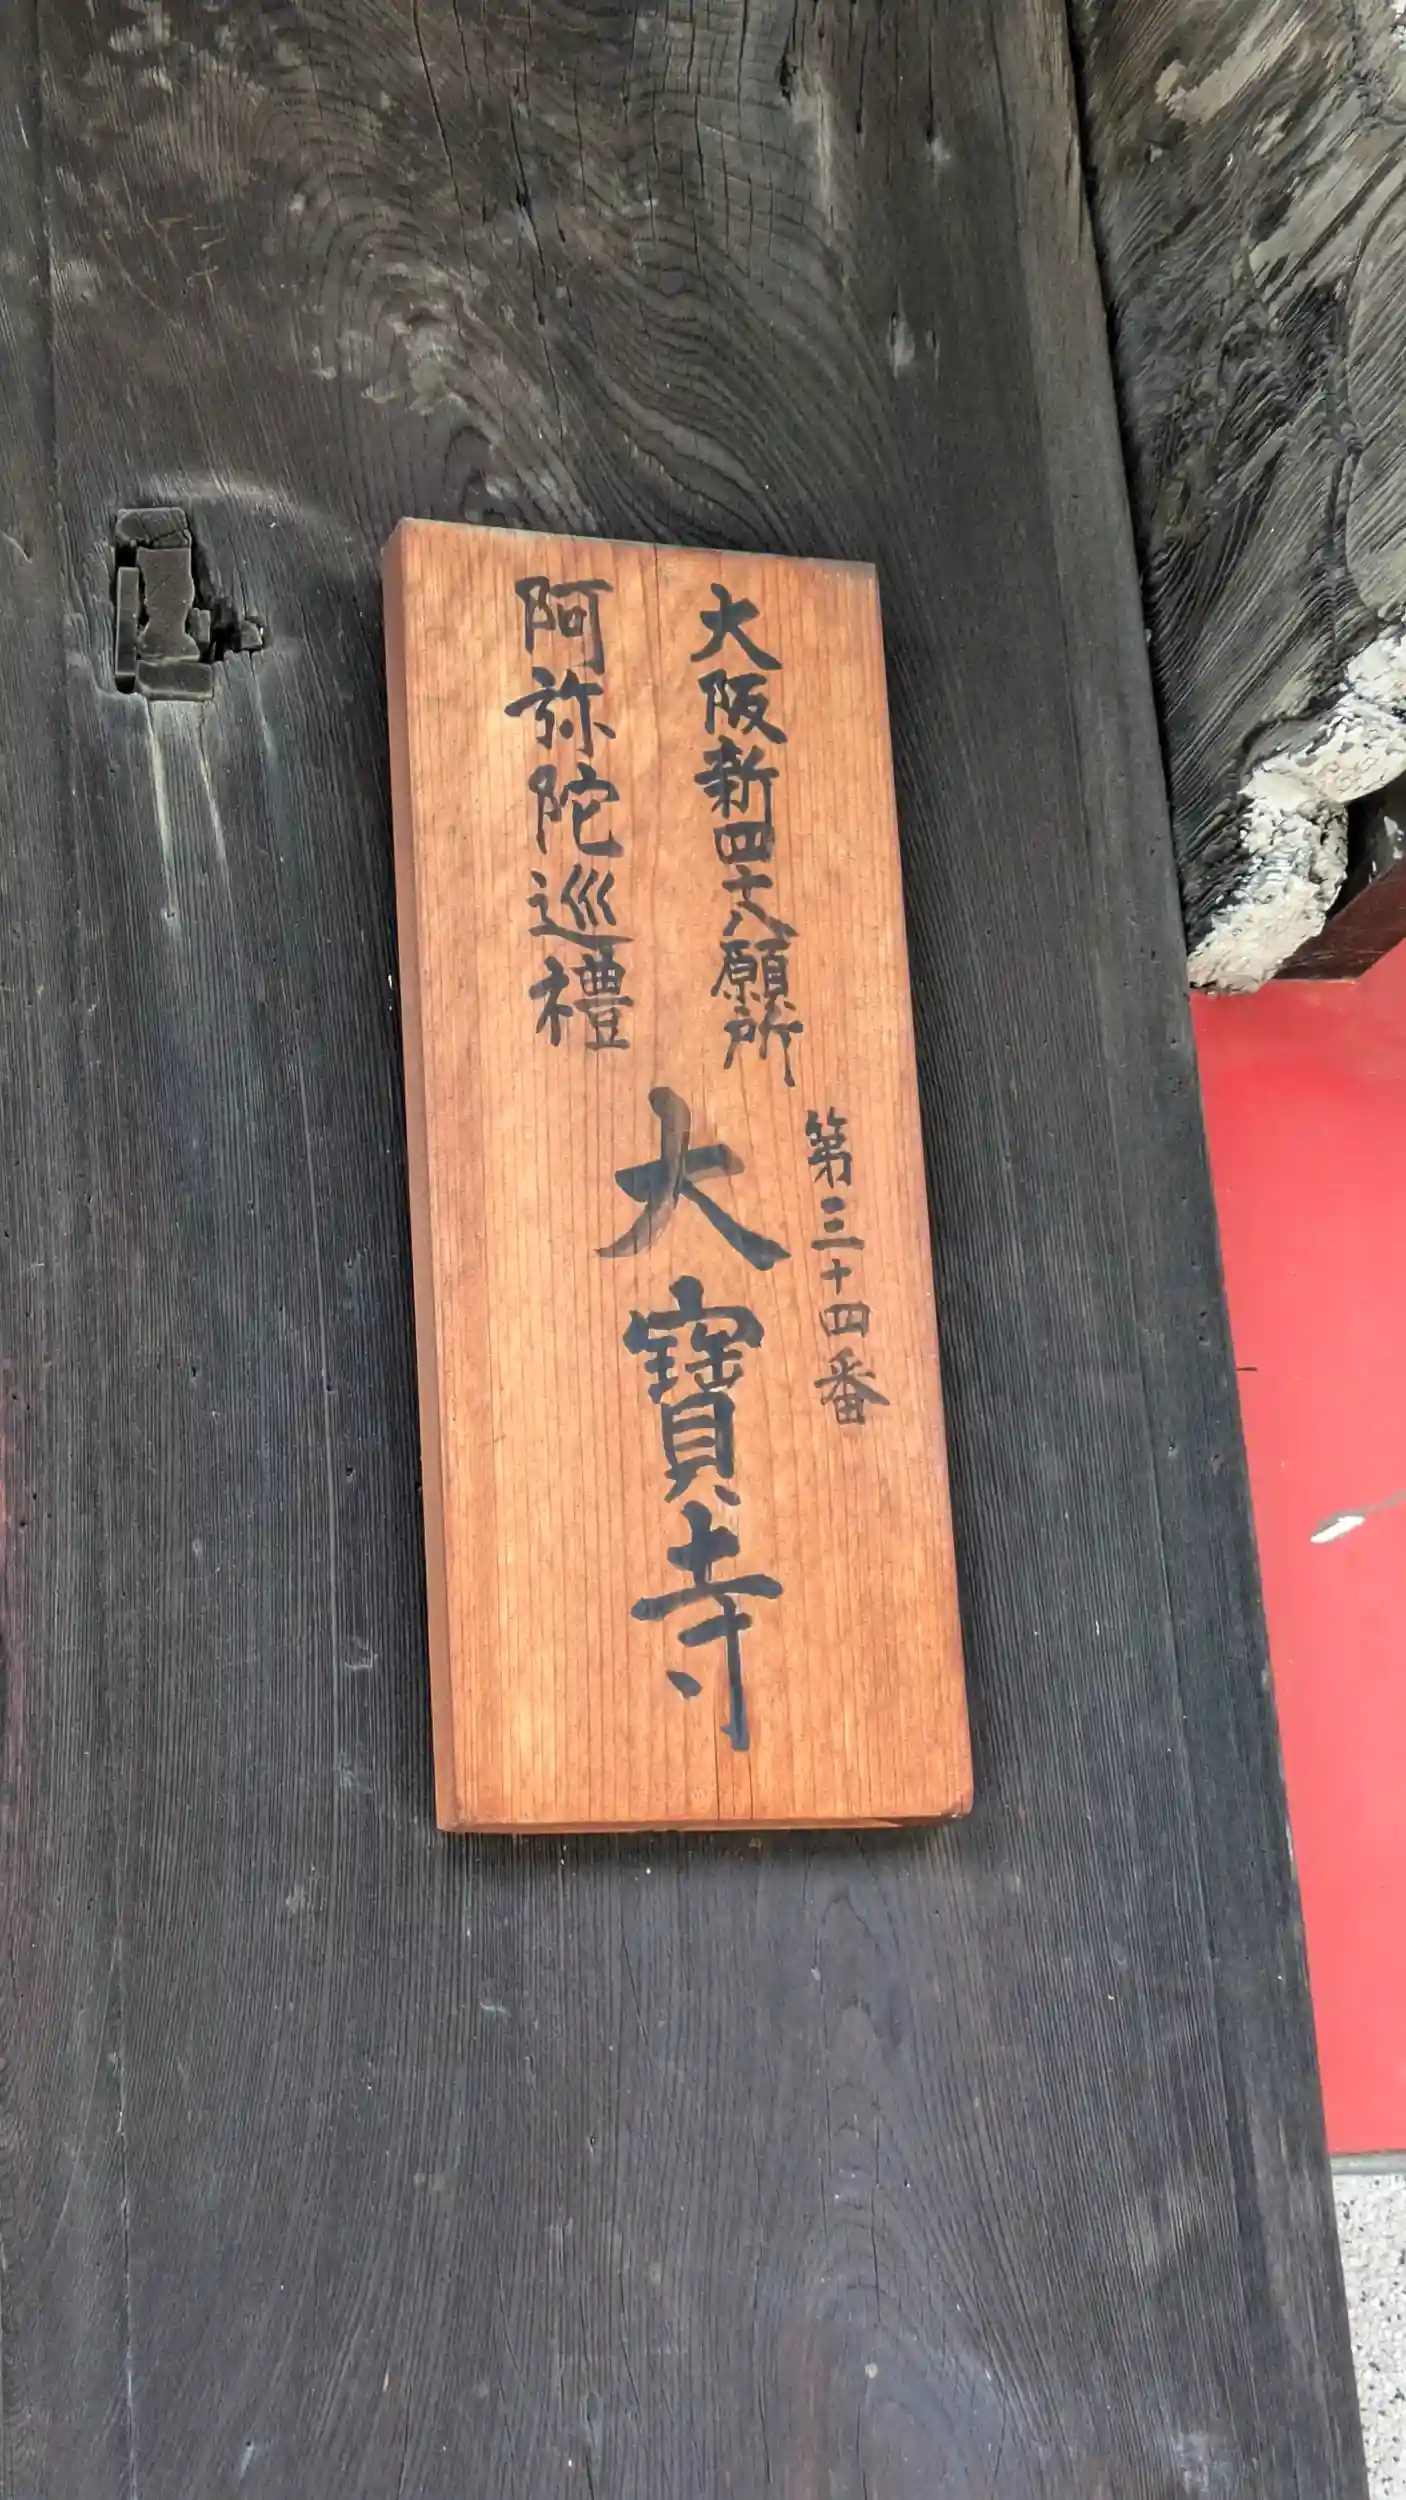 大阪新四十八願所
阿弥陀巡禮
第三十四番
大寶寺